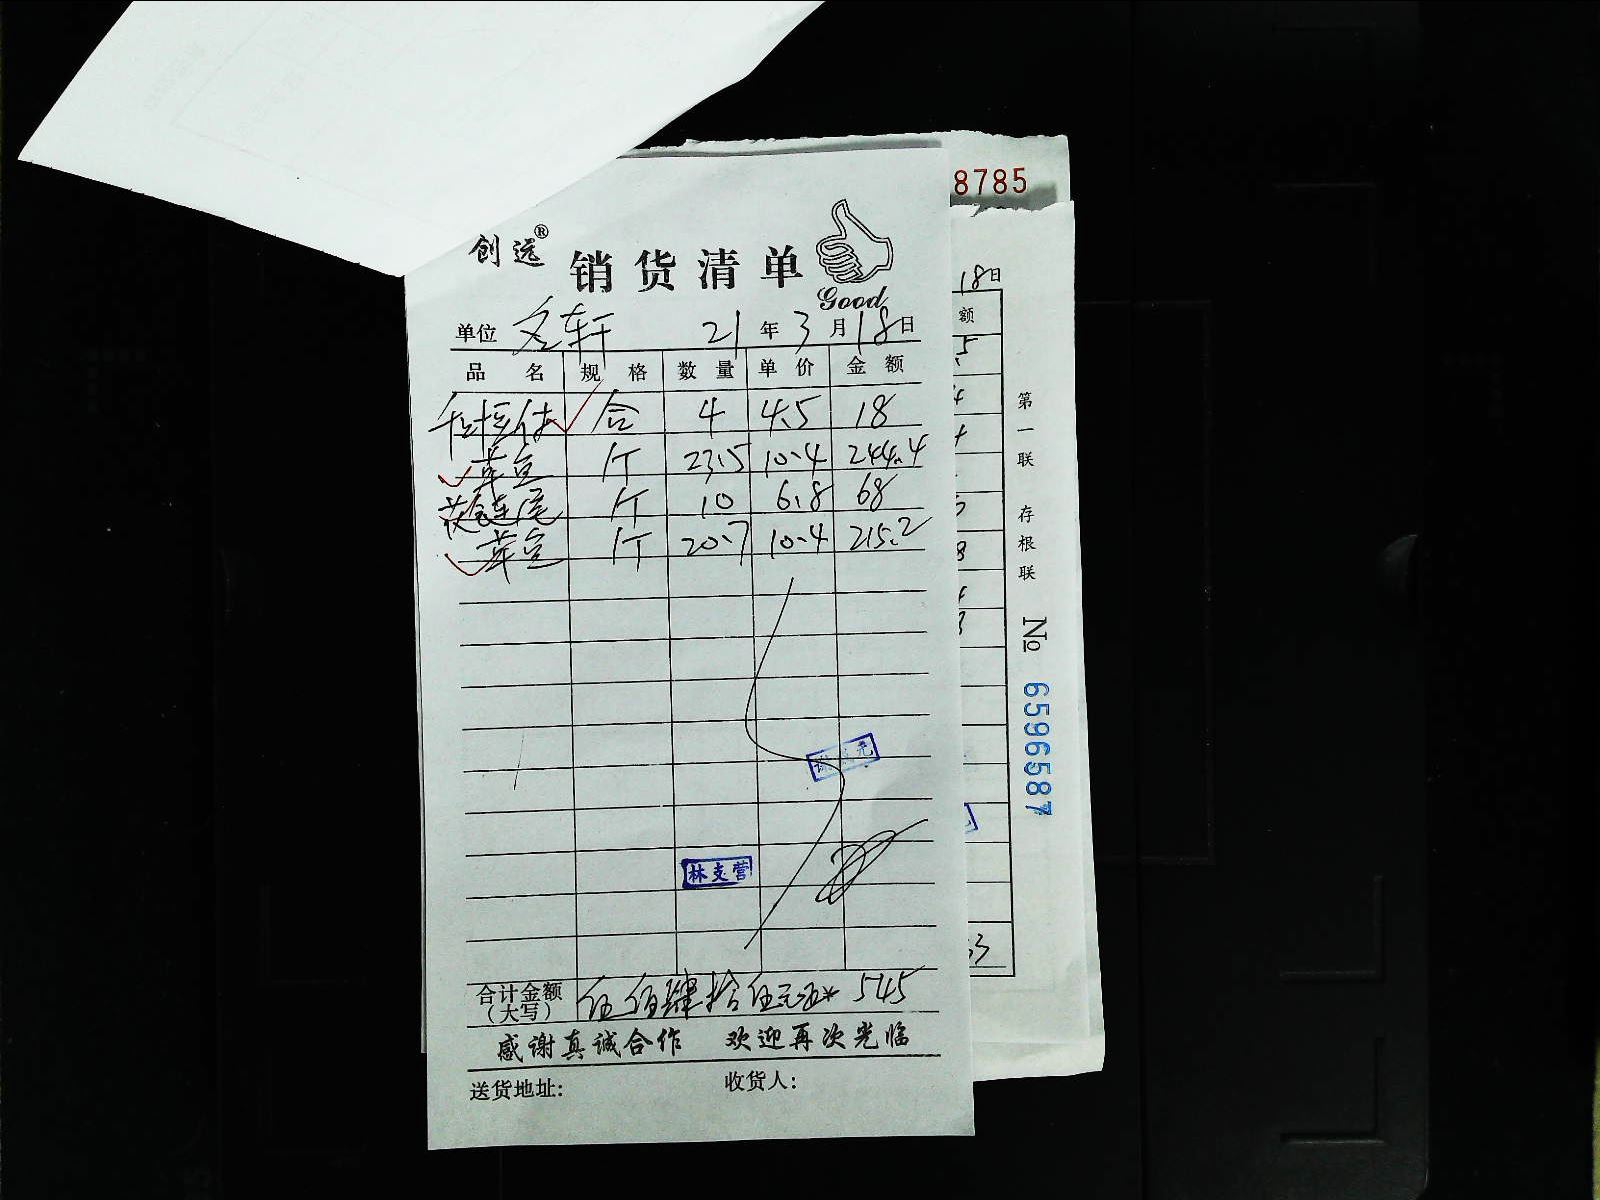 8785
创远®
销货清单
Good
单位 文轩 21年3月18日
品名 规格 数量 单价 金额
合 4 4.5 18
斤 23.5 10.4 244.4
斤 10 6.8 68
斤 20.7 10.4 215.2
林支营
合计金额(大写) 伍佰肆拾伍元 545
感谢真诚合作 欢迎再次光临
送货地址: 收货人:
18日
额
第一联 存根联 No 6596587